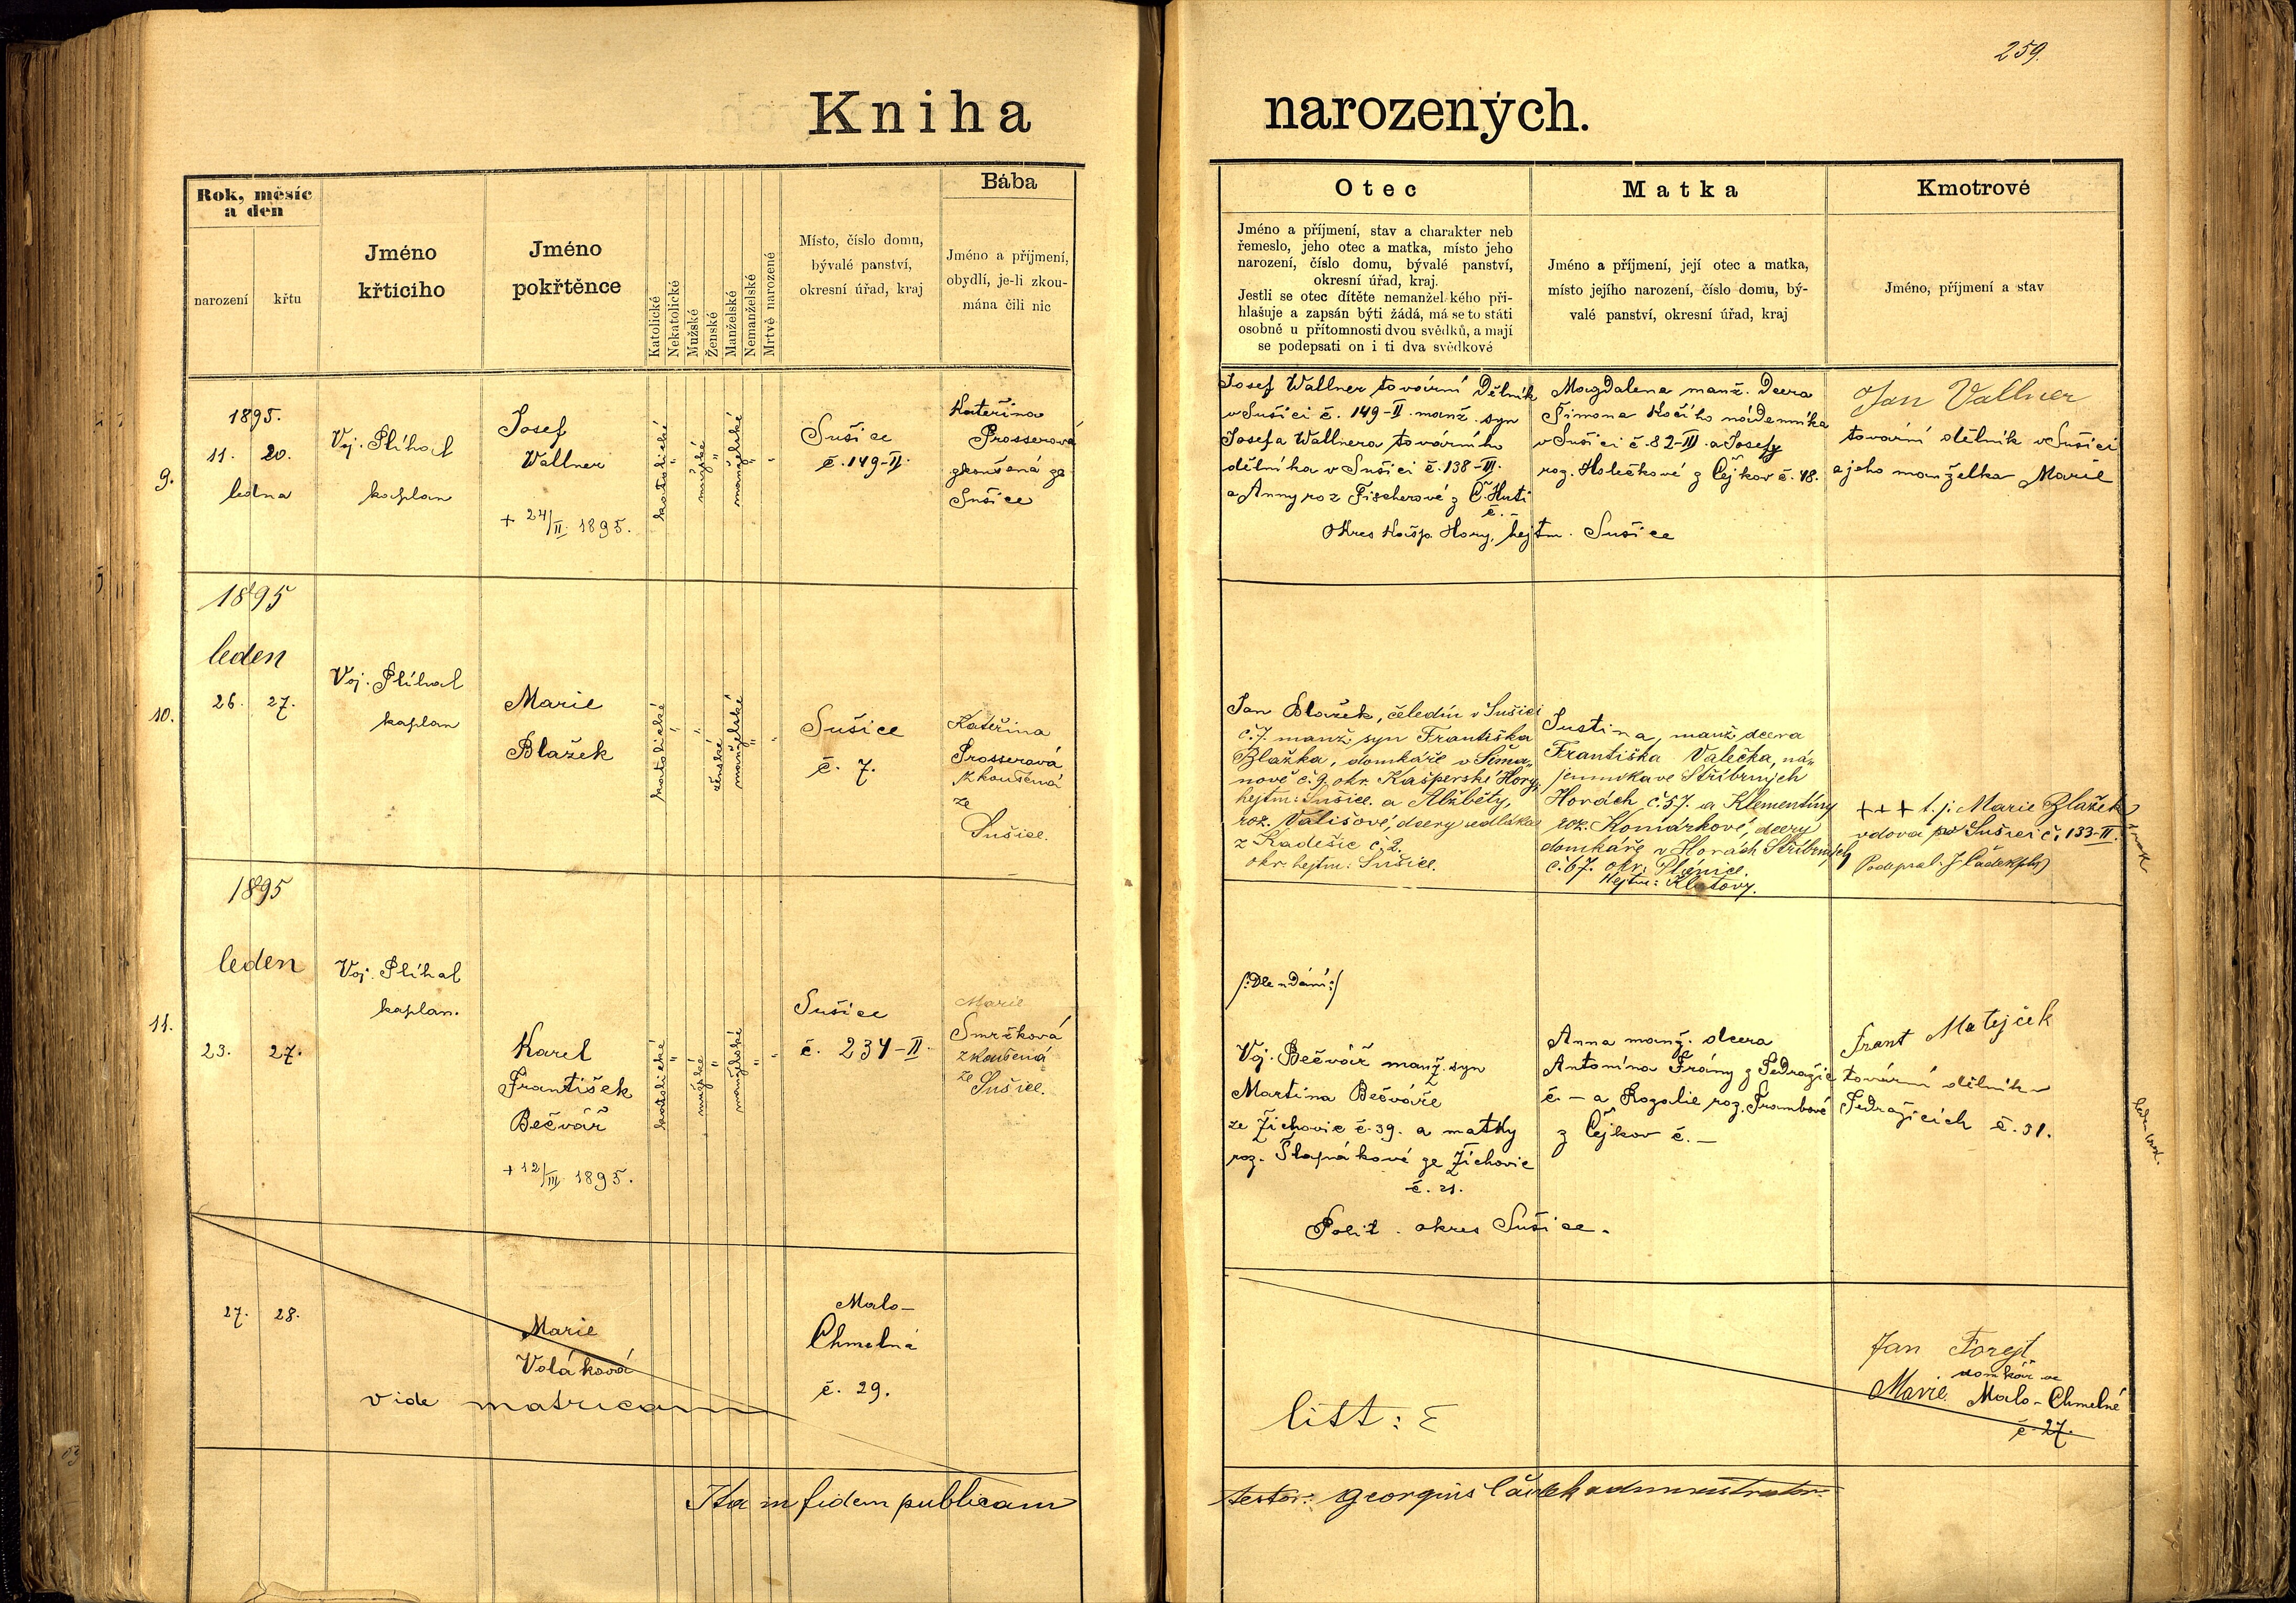 259.
Kniha narozených.
Rok, měsíc
a den
narození
křtu
Jméno
křticího
Jméno
pokřtěnce
Katolické
Nekatolické
Mužské
Ženské
Manželské
Nemanželské
Mrtvě narozené
Místo, číslo domu,
bývalé panství,
okresní úřad, kraj
Bába
Jméno a příjmení,
obydlí, je-li zkou-
mána čili nic
Otec
Jméno a příjmení, stav a charakter neb
řemeslo, jeho otec a matka, místo jeho
narození, číslo domu, bývalé panství,
okresní úřad, kraj.
Jestli se otec dítěte nemanželského při-
hlašuje a zapsán býti žádá, má se to státi
osobně u přítomnosti dvou svědků, a mají
se podepsati on i ti dva svědkové
Matka
Jméno a příjmení, její otec a matka,
místo jejího narození, číslo domu, bý-
valé panství, okresní úřad, kraj
Kmotrové
Jméno, příjmení a stav
9.
1895.
11. 20.
ledna
Voj. Plíhal
kaplan
Josef
Wallner
+ 24/II. 1895.
katolické
"
mužské
"
manželské
"
"
Sušice
č. 149-II.
Kateřina
Prosserová
zkoušená ze
Sušice
Josef Wallner tovární dělník
v Sušici č. 149-II. manž. syn
Josefa Wallnera továrního
dělníka v Sušici č. 138-III.
a Anny roz Fischerové z Č. Huti
č. –
Okres Kašp. Hory, hejtm. Sušice
Magdalena manž. dcera
Šimona Kočího nádenníka
v Sušici č. 82-III. a Josefy
roz. Holečkové z Čejkov č. 48.
Jan Vallner
tovární dělník v Sušici
a jeho manželka Marie
10.
1895
leden
26. 27.
Voj. Plíhal
kaplan
Marie
Blažek
katolické
"
"
ženské
manželské
"
"
Sušice
č. 7.
Kateřina
Prosserová
zkoušená
ze
Sušice.
Jan Blažek, čeledín v Sušici
č. 7. manž. syn Františka
Blažka, domkáře v Šima-
nově č. 9. okr. Kašperské Hory,
hejtm: Sušice. a Alžběty,
roz. Vališové, dcery sedláka
z Kadešic č. 2.
okr. hejtm: Sušice.
Justina, manž. dcera
Františka Valečka, ná-
jemníka ve Stříbrných
Horách č. 57. a Klementiny
roz. Komárkové, dcery
domkáře v Horách Stříbrných
č. 67. okr. Plánice.
Hejtm: Klatovy.
+++ t. j. Marie Blažek
vdova Sušici č. 133-II.
Podepsal: J. Čádek
11.
1895
leden
23. 27.
Voj. Plíhal
kaplan.
Karel
František
Bečvář
+ 12/III. 1895.
katolické
"
mužské
"
manželské
"
"
Sušice
č. 234-II.
Marie
Smržková
zkoušená
ze
Sušice.
/:Dle udání:/
Voj. Bečvář manž. syn
Martina Bečváře
ze Žichovic č. 39. a matky
roz. Šlapákové ze Žichovic
č. 21.
Polit. okres Sušice.
Anna manž. dcera
Antonína Frány z Tedražic
č. – a Rozalie roz.
z Čejkov č. –
Frant Matejček
tovární dělník v
Tedražicích č. 31.
27. 28.
Marie
Voláková
vide matricam
Malo-
Chmelná
č. 29.
litt: E
Jan Forejt
domkář ve
Marie Malo-Chmelné
č. 27.
Ita in fidem publicam
testor: Georgius Čádek administrator.